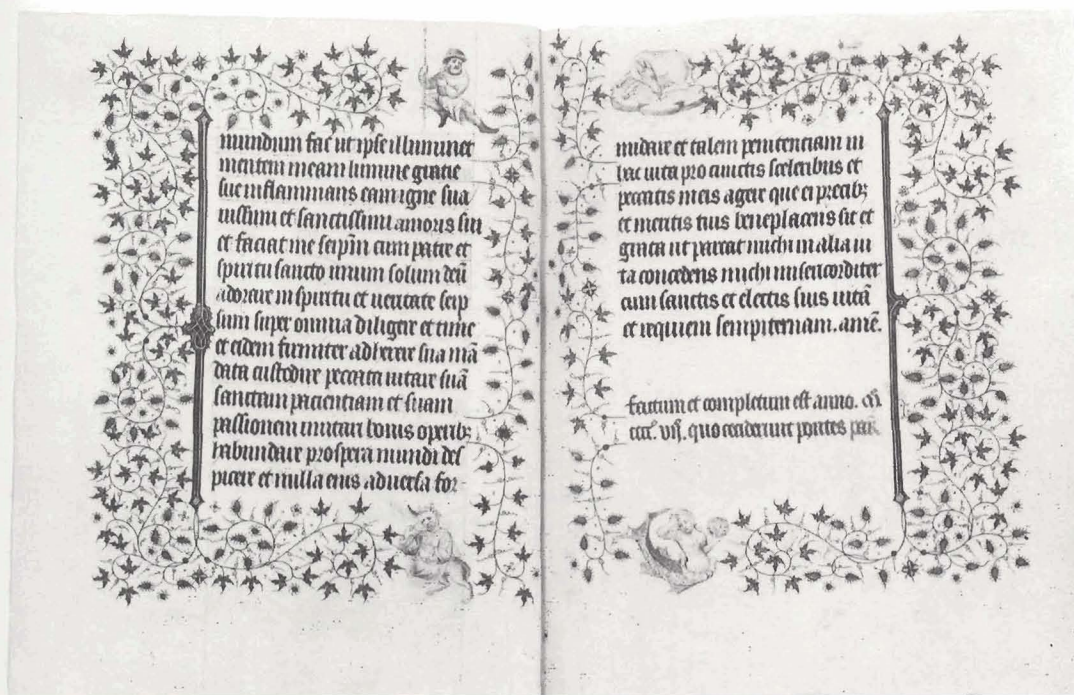 mundum fac ut ipse illuminet
mentem meam lumine gratie
sue inflammans eam igne sua
uissimi et sanctissimi amoris sui
et faciat me seip̄m cum patre et
spiritu sancto unum solum deū
adorare in spiritu et ueritate seip
sum super omnia diligere et time
et eidem firmiter adherere sua mā
data custodire peccata uitare suā
sanctam pacientiam et suam
passionem imitari bonis operibꝫ
habundare prospera mundi des
picere et nulla eius aduersa for
midare et talem penitenciam in
hac uita pro cunctis sceleribus et
peccatis meis agere que ei precibꝫ
et meritis tuis beneplacens sit et
grata ut parcat michi in alia ui
ta concedens michi misericorditer
cum sanctis et electis suis uitā
et requiem sempiternam. amē.
factum et completum est anno. mͦ.
ccccͦ. vijͦ. quo ceciderunt pontes par̄.